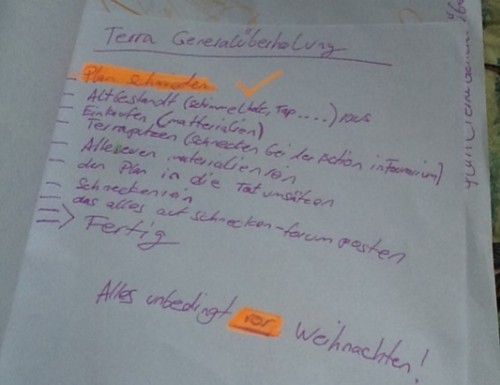 Terra Generalüberholung
Plan schmieden
Altbestandt (schimmelholz, Top.....) raus
Einkaufen (matterialien)
Terraputzen (schnecken bei der action in Faunarium)
Alle neuen materialien rein
den Plan in die Tat umsätzen
Schnecken rein
das alles auf schnecken-forum posten
Fertig
Alles unbedingt vor Weihnachten!